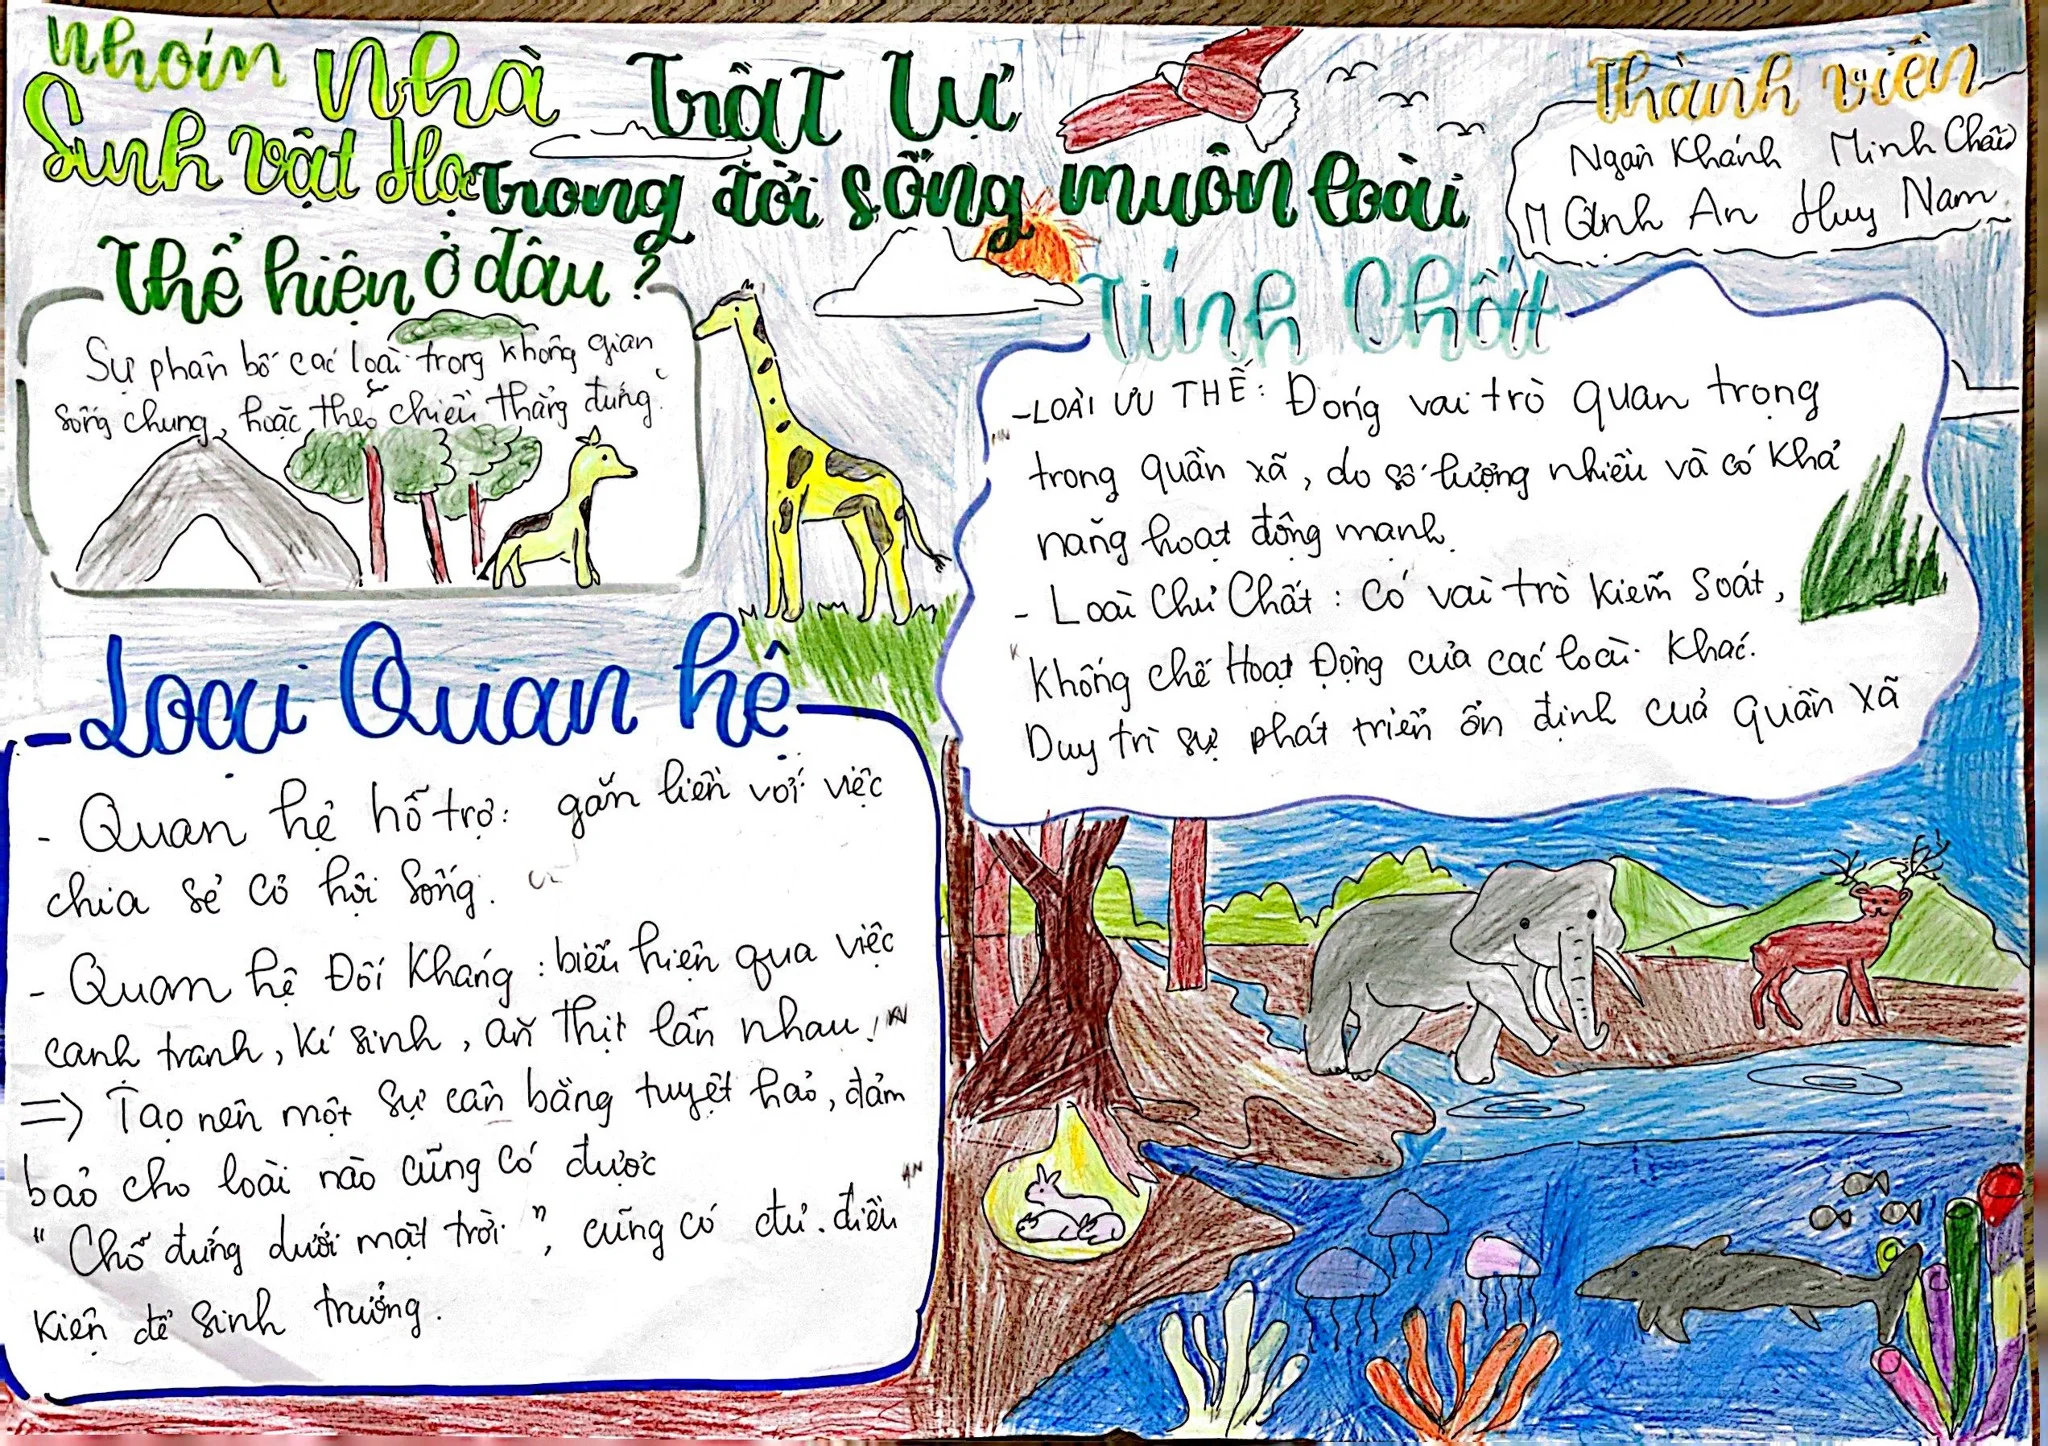 Nhóm Nhà
Sinh vật Học
Trật tự
trong đời sống muôn loài
Thành viên
Ngân Khánh Minh Châu
M Anh An Huy Nam
Thể hiện ở đâu?
Sự phân bố các loài trong không gian
sống chung, hoặc theo chiều thẳng đứng.
Tính Chất
- LOÀI ƯU THẾ: Đóng vai trò quan trọng
trong quần xã, do số lượng nhiều và có khả
năng hoạt động mạnh.
- Loài Chủ Chất: Có vai trò kiểm soát,
Khống chế Hoạt Động của các loài khác.
Duy trì sự phát triển ổn định của quần xã
Loại Quan hệ
- Quan hệ hỗ trợ: gắn liền với việc
chia sẻ cơ hội sống.
- Quan hệ Đối Kháng: biểu hiện qua việc
canh tranh, kí sinh, ăn thịt lẫn nhau.
=> Tạo nên một sự cân bằng tuyệt hảo, đảm
bảo cho loài nào cũng có được
"Chỗ đứng dưới mặt trời", cũng có đủ điều
kiện để sinh trưởng.